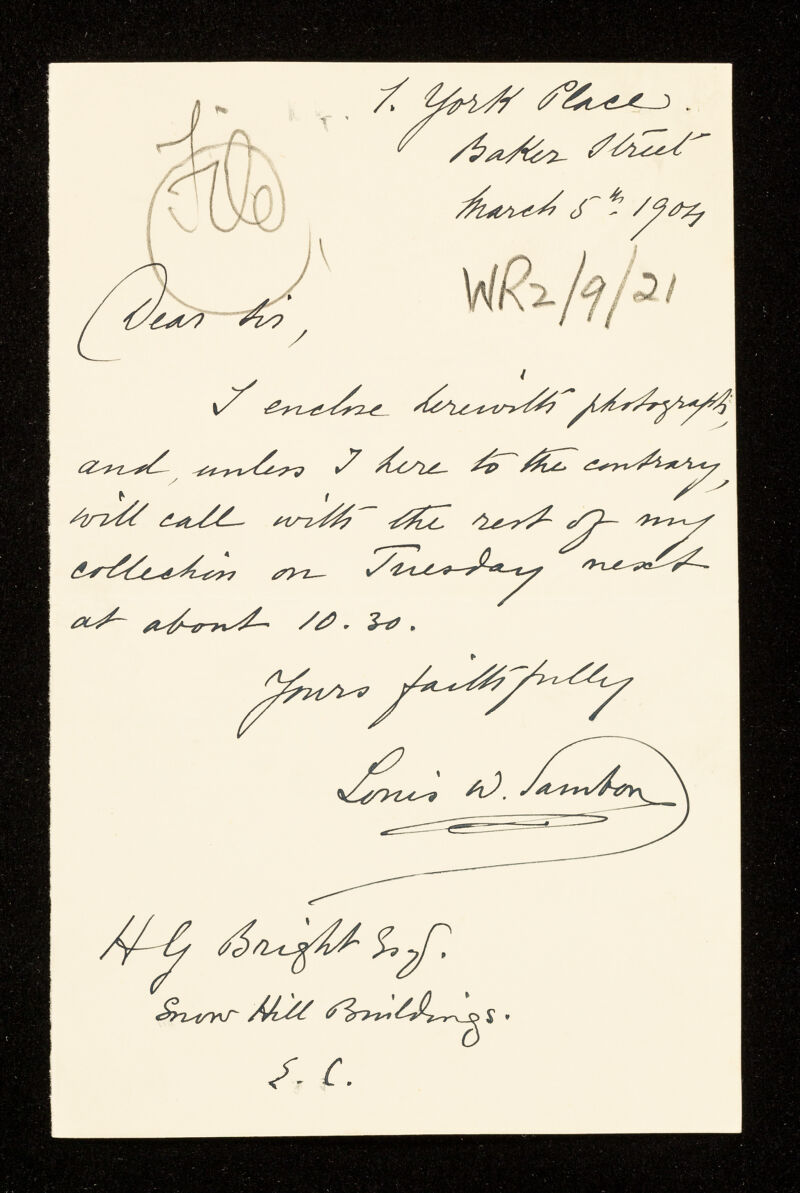 File
1. York Place.
Baker Street
March 5th. 1904
WR2/9/21
Dear Sir,
I enclose herewith photographs,
and, unless I here to the contrary,
will call with the rest of my
collection on Tuesday next
at about 10.30.
Yours faithfully
Louis W. Sambon
H G Bright Esq.
Snow Hill Buildings.
E. C.